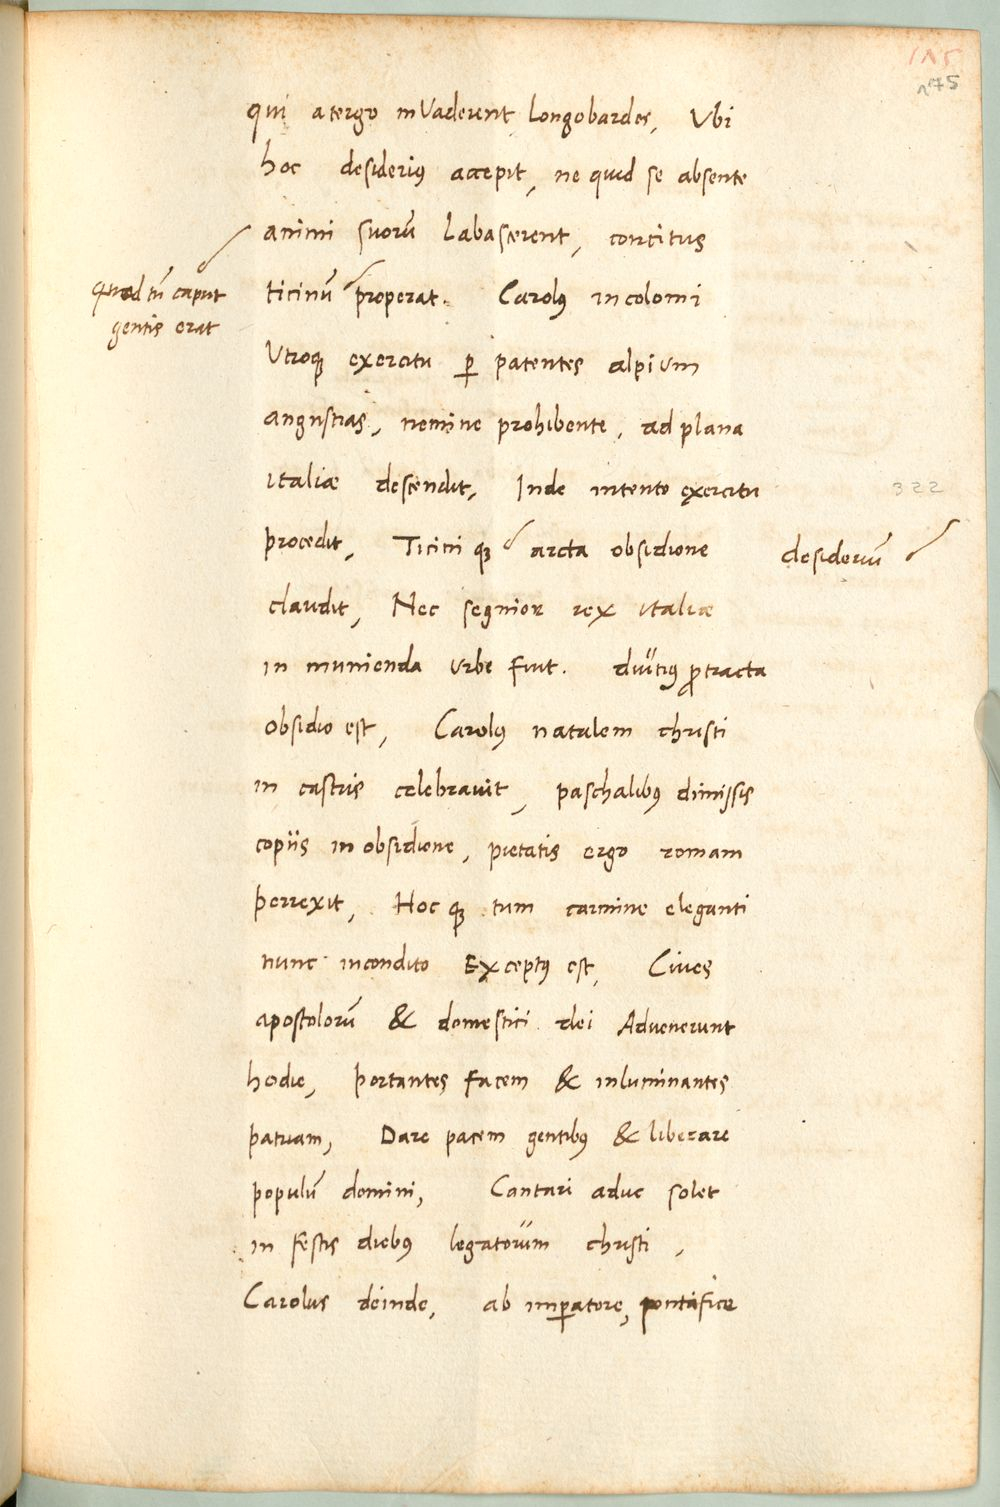 175
qui a tergo inVaderent Longobardos, Vbi
hoc desiderius accepit, ne quid se absente
animi suorũ Labascerent, concitus
quod tũ caput
gentis erat
ticinũ properat. Carolus incolomi
Vtroque exercitu ꝑ patentes alpium
angustias, nemine prohibente, ad plana
italiæ descendit, Inde intento exercitu
322
procedit, Ticini qꝫ arcta obsidione
desideriũ
claudit, Nec segnior rex italiæ
in munienda Vrbe fuit. diutius ꝓtracta
obsidio est, Carolus natalem christi
in castris celebravit, paschalibus dimissis
copiis in obsidione, pietatis ergo romam
perrexit, Hoc qꝫ tum carmine eleganti
nunc incondito Exceptus est, Cives
apostolorũ & domestici dei Advenerunt
hodie, portantes facem & inluminantes
patriam, Dare pacem gentibus & liberare
populũ domini, Cantari aduc solet
in festis diebus legatorum christi,
Carolus deinde, ab imꝑatore, pontifice